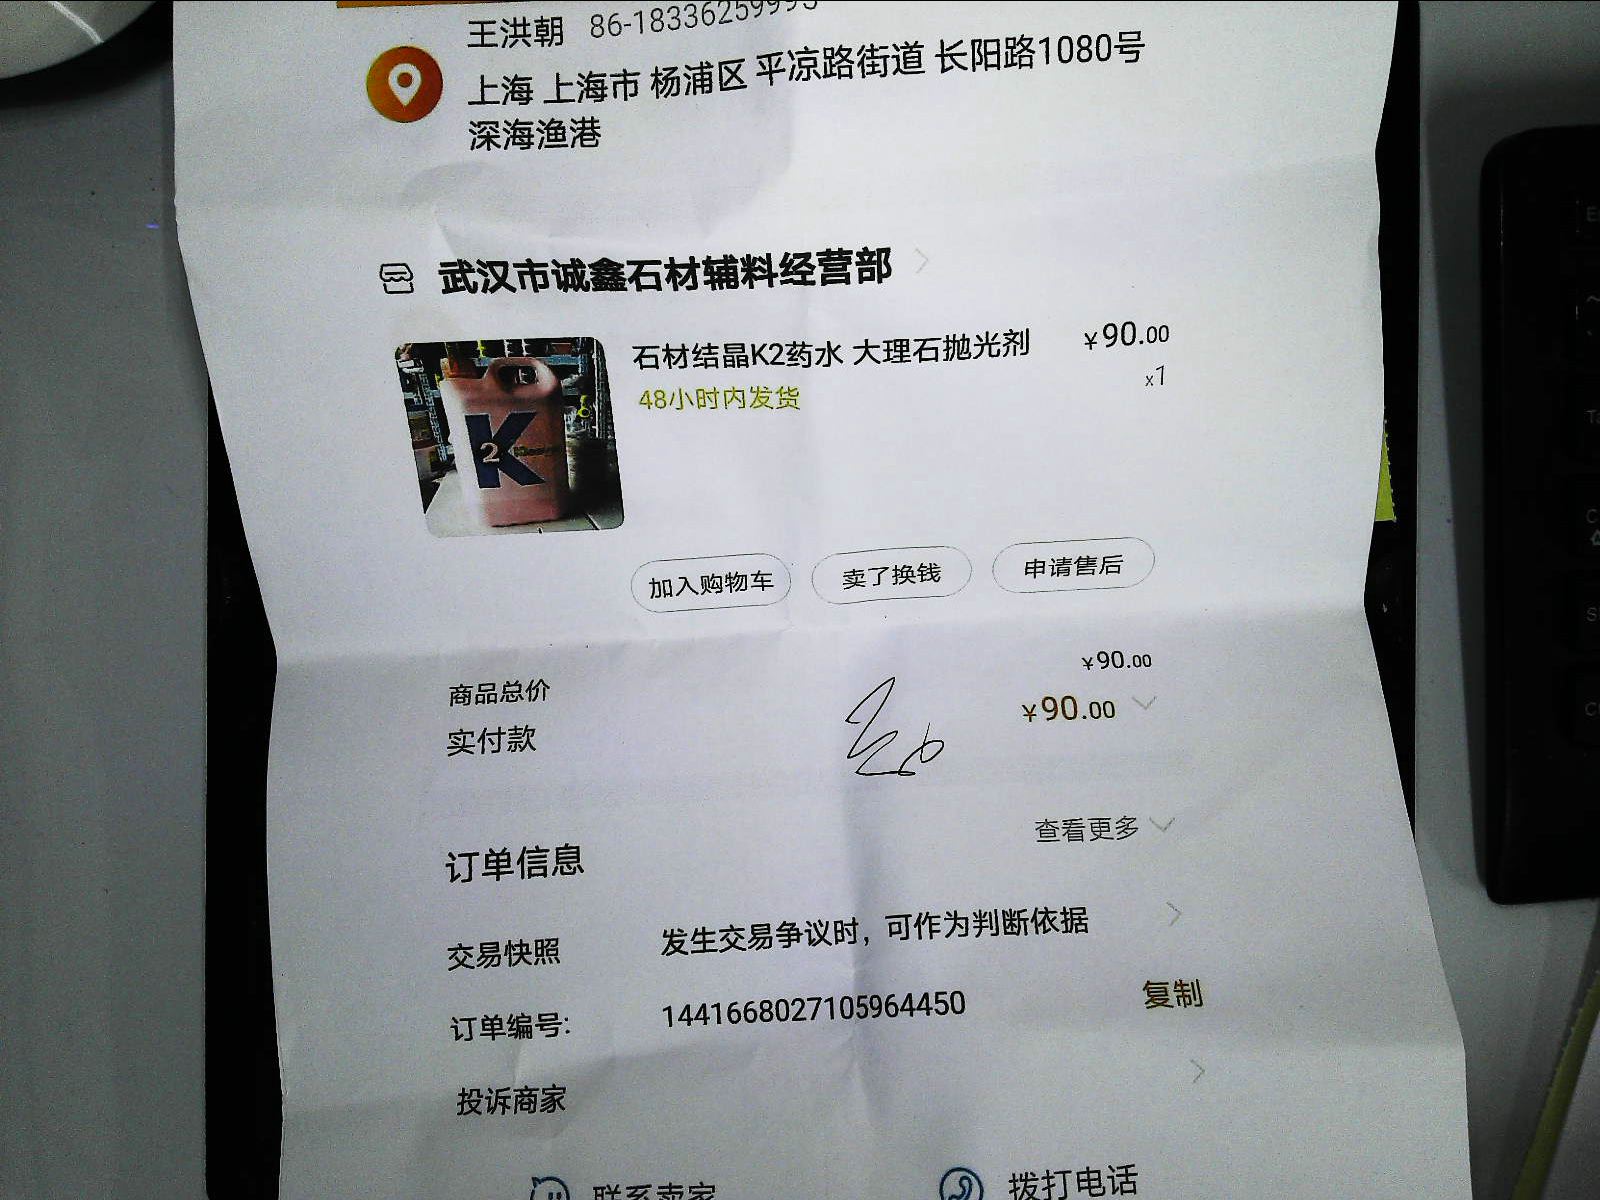 王洪朝 86-18336259993
上海 上海市 杨浦区 平凉路街道 长阳路1080号
深海渔港
武汉市诚鑫石材辅料经营部
石材结晶K2药水 大理石抛光剂 ¥90.00
48小时内发货 x1
K2
加入购物车 卖了换钱 申请售后
商品总价 ¥90.00
实付款 ¥90.00
查看更多
订单信息
交易快照 发生交易争议时，可作为判断依据
订单编号: 1441668027105964450 复制
投诉商家
联系卖家 拨打电话